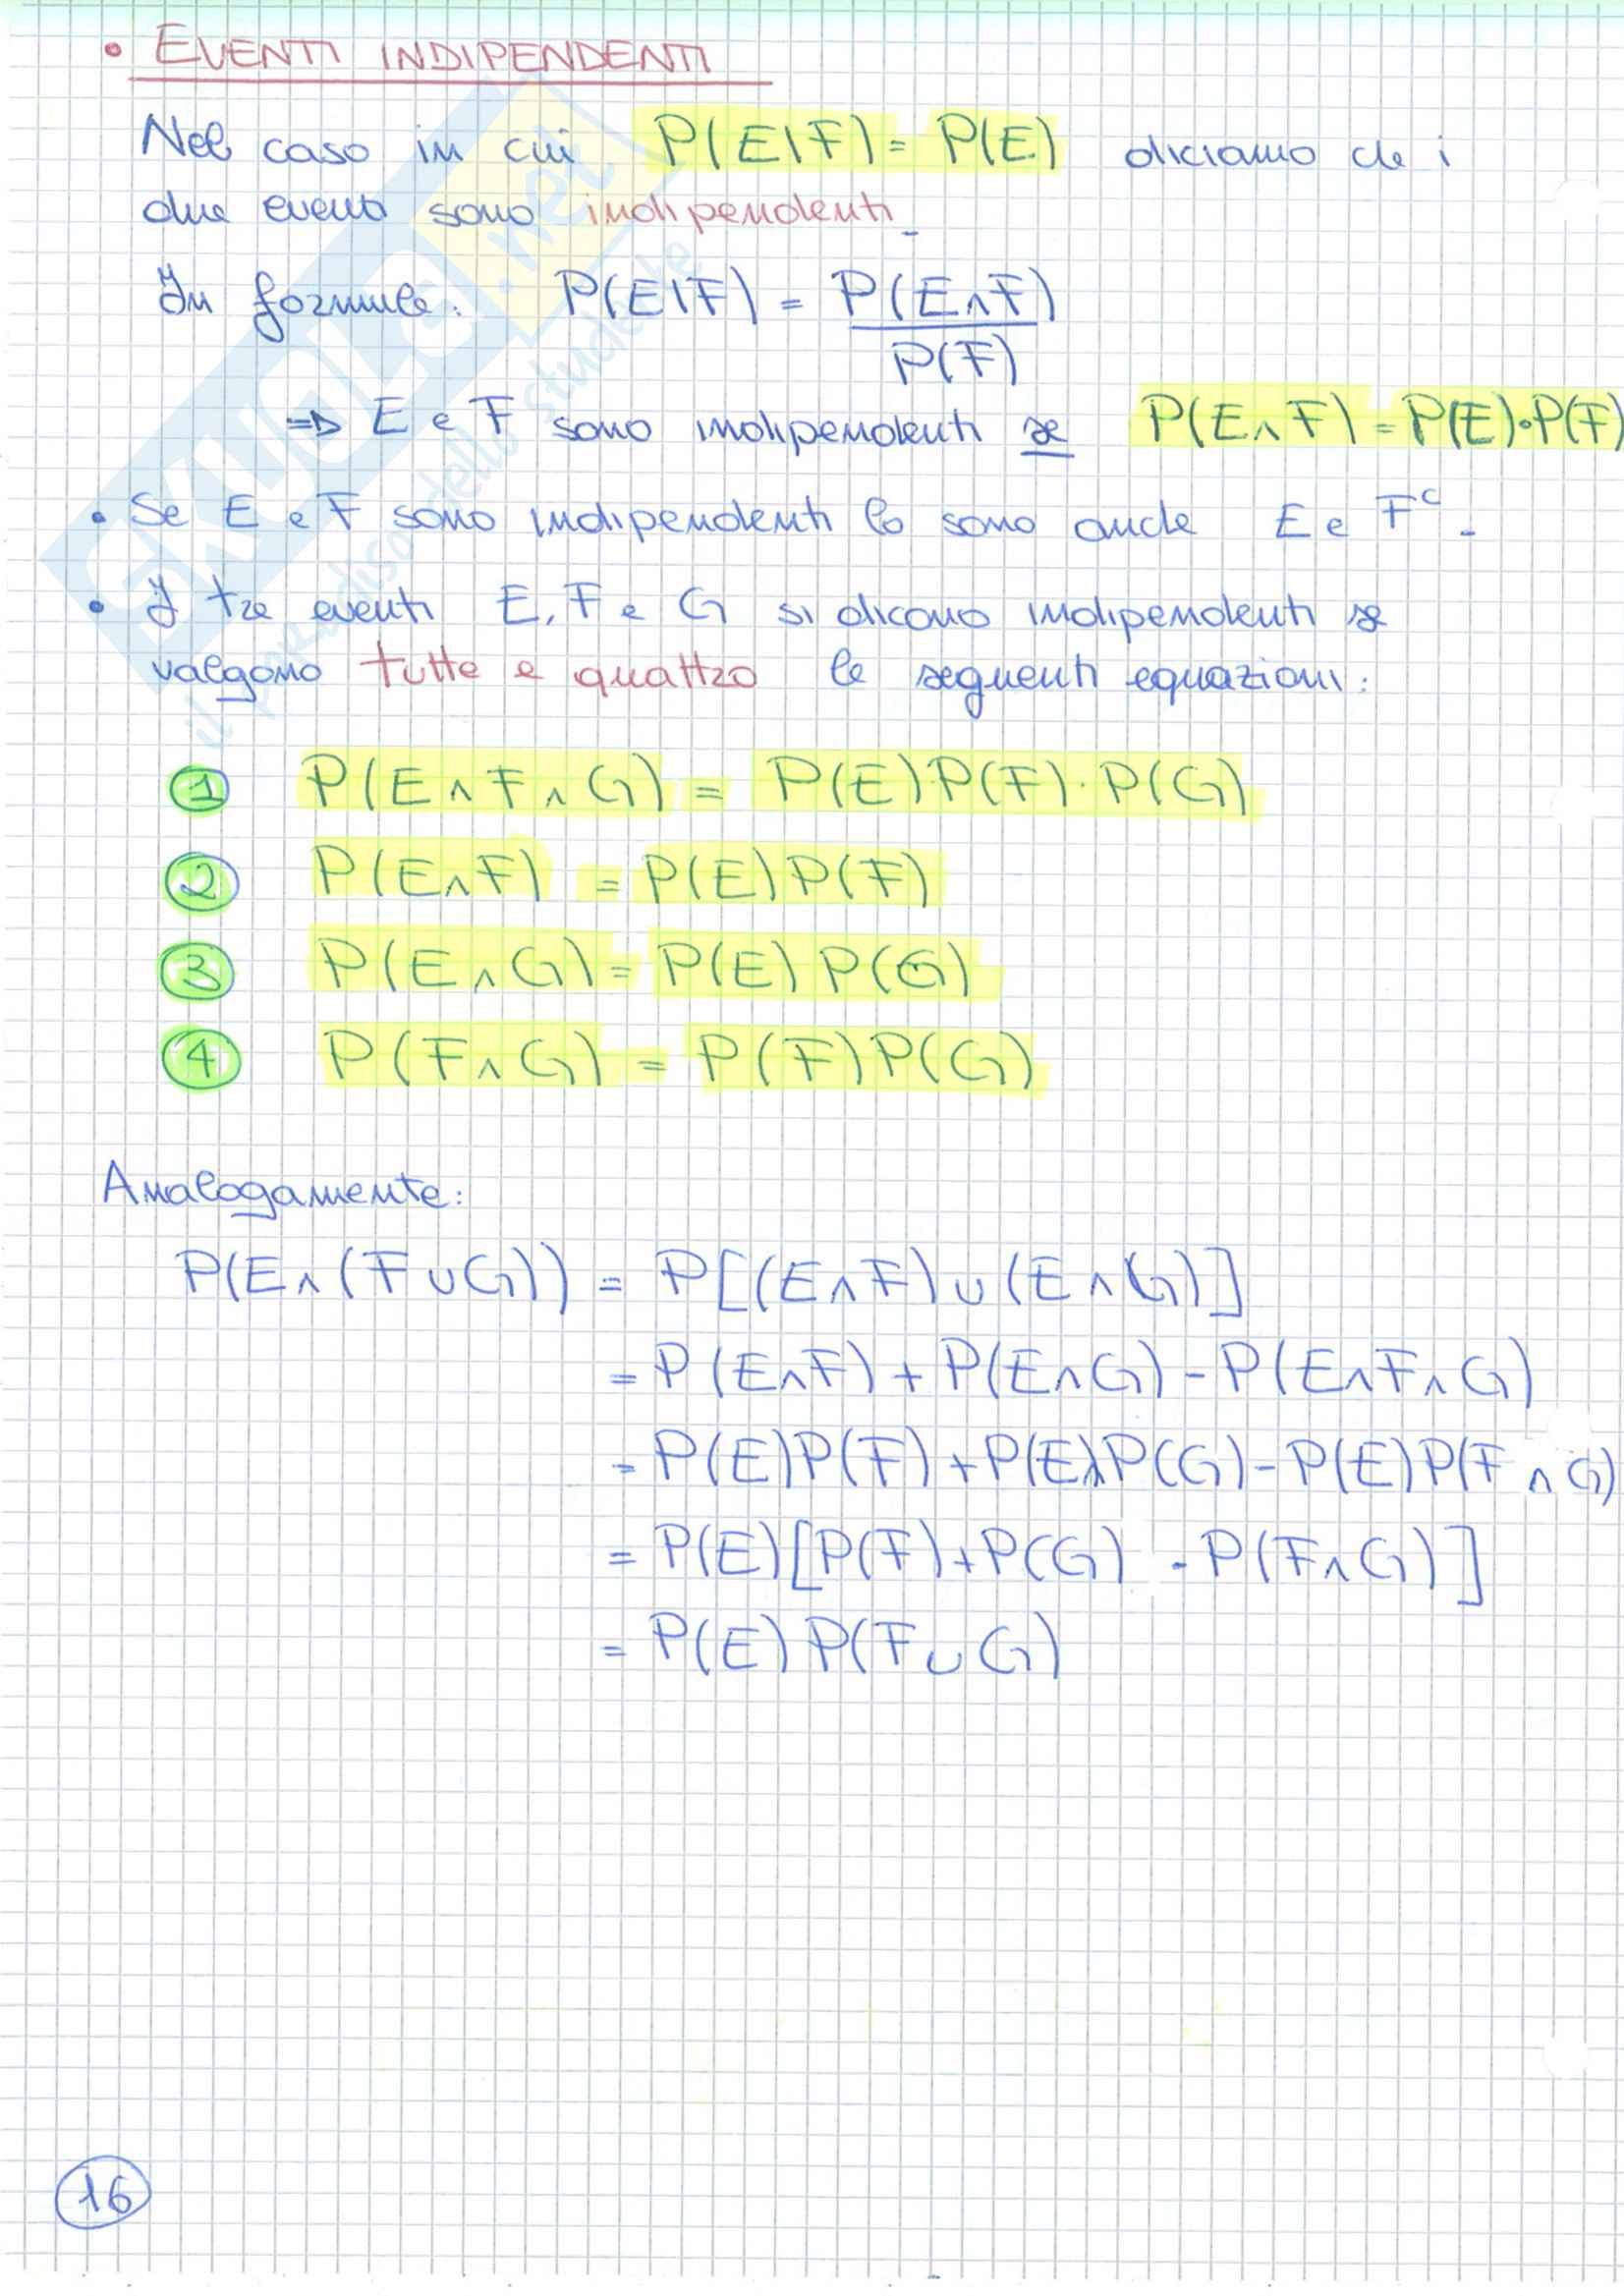 • EVENTI INDIPENDENTI
Nel caso in cui P(E|F) = P(E) diciamo che i
due eventi sono indipendenti.
In formule: P(E|F) = P(E∧F)
P(F)
⇒ E e F sono indipendenti se P(E∧F) = P(E)·P(F)
• Se E e F sono indipendenti lo sono anche E e Fᶜ.
• I tre eventi E, F e G si dicono indipendenti se
valgono tutte e quattro le seguenti equazioni:
① P(E∧F∧G) = P(E)P(F)·P(G)
② P(E∧F) = P(E)P(F)
③ P(E∧G) = P(E)P(G)
④ P(F∧G) = P(F)P(G)
Analogamente:
P(E∧(F∪G)) = P[(E∧F)∪(E∧G)]
= P(E∧F) + P(E∧G) - P(E∧F∧G)
= P(E)P(F) + P(E)P(G) - P(E)P(F∧G)
= P(E)[P(F)+P(G) - P(F∧G)]
= P(E)P(F∪G)
16
SKUOLA.net
il paradiso dello studente